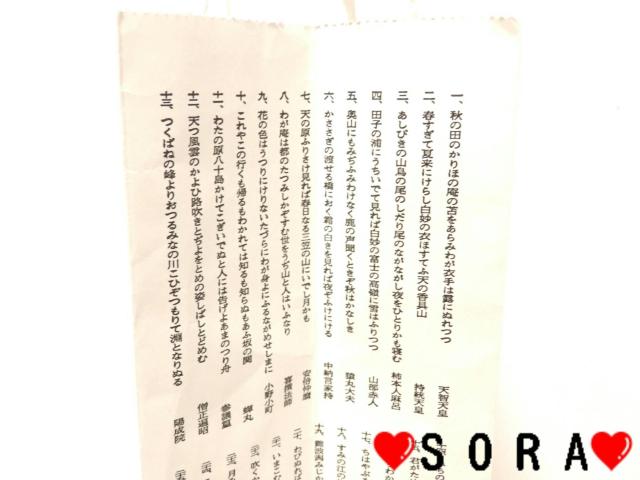 一、秋の田のかりほの庵の苫をあらみわが衣手は露にぬれつつ 天智天皇
二、春すぎて夏来にけらし白妙の衣ほすてふ天の香具山 持統天皇
三、あしびきの山鳥の尾のしだり尾のながながし夜をひとりかも寝む 柿本人麻呂
四、田子の浦にうちいでて見れば白妙の富士の高嶺に雪はふりつつ 山部赤人
五、奥山にもみぢふみわけなく鹿の声聞くときぞ秋はかなしき 猿丸大夫
六、かささぎの渡せる橋におく霜の白きを見れば夜ぞふけにける 中納言家持
七、天の原ふりさけ見れば春日なる三笠の山にいでし月かも 安倍仲麿
八、わが庵は都のたつみしかぞすむ世をうぢ山と人はいふなり 喜撰法師
九、花の色はうつりにけりないたづらにわが身よにふるながめせしまに 小野小町
十、これやこの行くも帰るもわかれては知るも知らぬもあふ坂の関 蝉丸
十一、わたの原八十島かけてこぎいでぬと人には告げよあまのつり舟 参議篁
十二、天つ風雲のかよひ路吹きとぢよをとめの姿しばしとどめむ 僧正遍昭
十三、つくばねの峰よりおつるみなの川こひぞつもりて淵となりぬる 陽成院
君がた
十七、ちはやぶる
十八、すみの江の
十九、難波潟みじか
二十、わびぬれば
いまこむ
吹くか
月み
SORA